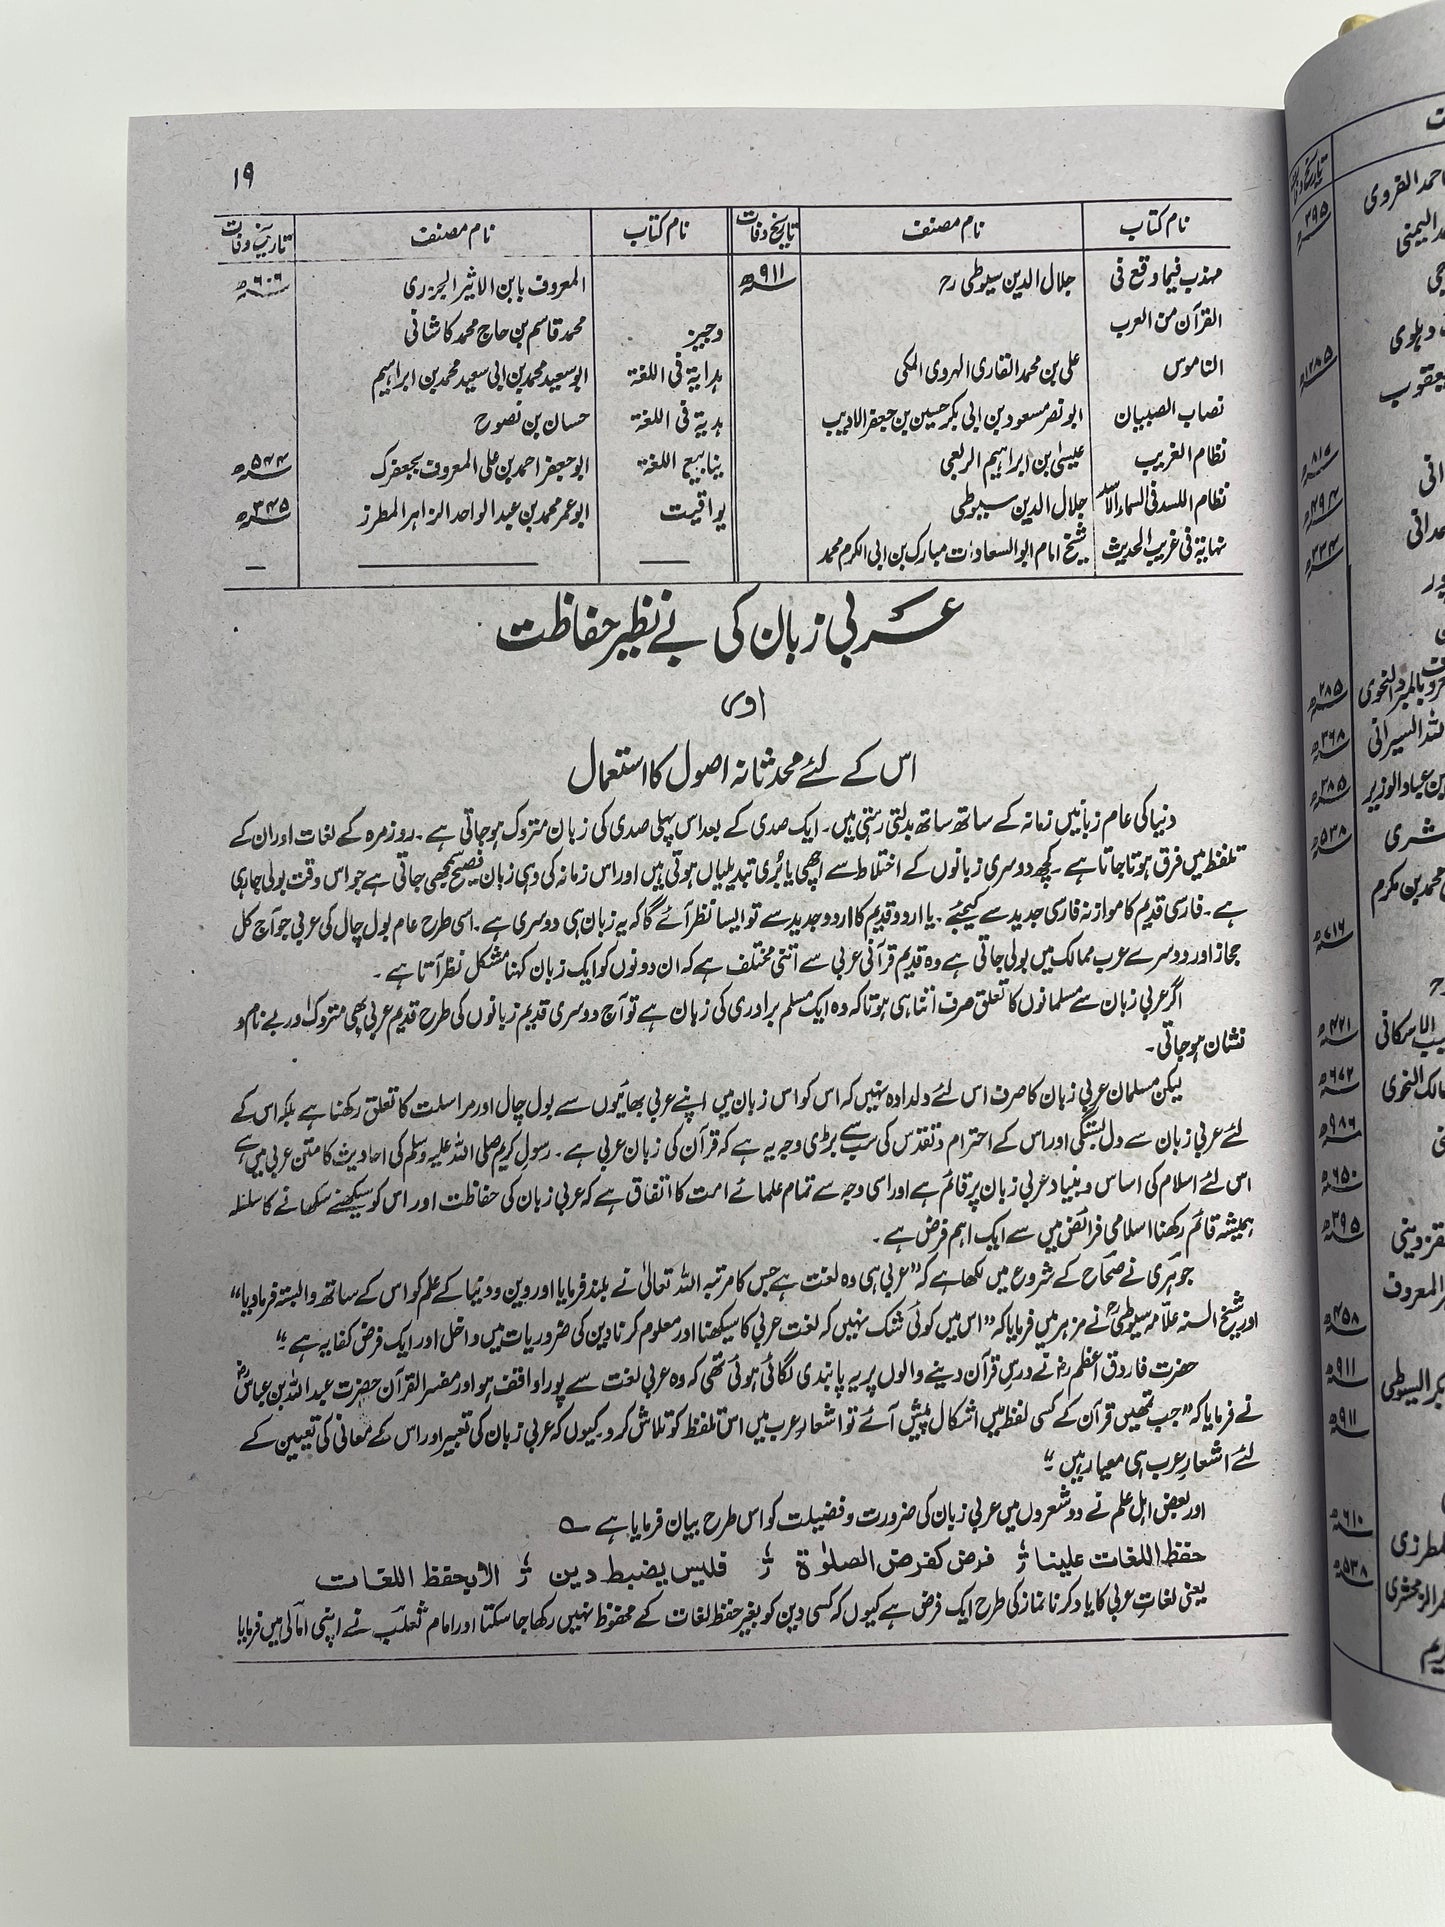 ۱۹
نام کتاب نام مصنف تاریخ وفات نام کتاب نام مصنف تاریخ وفات
مہذب فیما وقع فی جلال الدین سیوطی رح ۹۱۱ھ المعروف بابن الاثیر الجزری ۶۰۶ھ
القرآن من العرب وجیز محمد قاسم بن حاج محمد کاشانی
الناموس علی بن محمد القاری الہروی المکی ہدایۃ فی اللغۃ ابوسعید محمد بن ابی سعید محمد بن ابراہیم
نصاب الصبیان ابو نصر مسعود بن ابی بکر حسین بن جعفر الادیب ہدیۃ فی اللغۃ حسان بن نصوح
نظام الغریب عیسیٰ بن ابراہیم الربعی ینابیع اللغۃ ابو جعفر احمد بن علی المعروف بجعفرک ۵۴۴ھ
نظام اللسد فی اسماء الاسد جلال الدین سیوطی یواقیت ابو عمر محمد بن عبد الواحد الزاہر المطرز ۳۴۵ھ
نہایۃ فی غریب الحدیث شیخ امام ابو السعادات مبارک بن ابی الکرم محمد
عربی زبان کی بے نظیر حفاظت
اور
اس کے لئے محدثانہ اصول کا استعمال
دنیا کی عام زبانیں زمانہ کے ساتھ ساتھ بدلتی رہتی ہیں۔ ایک صدی کے بعد اس پہلی صدی کی زبان متروک ہو جاتی ہے۔ روزمرہ کے لغات اور ان کے
تلفظ میں فرق ہوتا جاتا ہے۔ کچھ دوسری زبانوں کے اختلاط سے اچھی یا بُری تبدیلیاں ہوتی ہیں اور اس زمانہ کی وہی زبان فصیح سمجھی جاتی ہے جو اس وقت بولی جا رہی
ہے۔ فارسی قدیم کا موازنہ فارسی جدید سے کیجئے۔ یا اردو قدیم کا اردو جدید سے تو ایسا نظر آئے گا کہ یہ زبان ہی دوسری ہے۔ اسی طرح عام بول چال کی عربی جو آج کل
حجاز اور دوسرے عرب ممالک میں بولی جاتی ہے وہ قدیم قرآنی عربی سے اتنی مختلف ہے کہ ان دونوں کو ایک زبان کہنا مشکل نظر آتا ہے۔
اگر عربی زبان سے مسلمانوں کا تعلق صرف اتنا ہی ہوتا کہ وہ ایک مسلم برادری کی زبان ہے تو آج دوسری قدیم زبانوں کی طرح قدیم عربی بھی متروک اور بے نام و
نشان ہو جاتی۔
لیکن مسلمان عربی زبان کا صرف اس لئے دلدادہ نہیں کہ اس کو اس زبان میں اپنے عربی بھائیوں سے بول چال اور مراسلت کا تعلق رکھنا ہے بلکہ اس کے
لئے عربی زبان سے دل بستگی اور اس کے احترام و تقدس کی سب سے بڑی وجہ یہ ہے کہ قرآن کی زبان عربی ہے۔ رسول کریم صلی اللہ علیہ وسلم کی احادیث کا متن عربی میں ہے
اس لئے اسلام کی اساس و بنیاد عربی زبان پر قائم ہے اور اسی وجہ سے تمام علمائے امت کا اتفاق ہے کہ عربی زبان کی حفاظت اور اس کو سیکھنے سکھانے کا سلسلہ
ہمیشہ قائم رکھنا اسلامی فرائض میں سے ایک اہم فرض ہے۔
جوہری نے صحاح کے شروع میں لکھا ہے کہ "عربی ہی وہ لغت ہے جس کا مرتبہ اللہ تعالیٰ نے بلند فرمایا اور دین و دنیا کے علم کو اس کے ساتھ وابستہ فرما دیا"
اور شیخ السنہ علامہ سیوطیؒ نے مزہر میں فرمایا کہ "اس میں کوئی شک نہیں کہ لغت عربی کا سیکھنا اور معلوم کرنا دین کی ضروریات میں داخل اور ایک فرض کفایہ ہے۔"
حضرت فاروق اعظمؓ نے درس قرآن دینے والوں پر یہ پابندی لگائی ہوئی تھی کہ وہ عربی لغت سے پورا واقف ہو اور مفسر القرآن حضرت عبد اللہ بن عباسؓ
نے فرمایا کہ "جب تمھیں قرآن کے کسی لفظ میں اشکال پیش آئے تو اشعار عرب میں اس تلفظ کو تلاش کرو کیوں کہ عربی زبان کی تعبیر اور اس کے معانی کی تعیین کے
لئے اشعارِ عرب ہی معیار ہیں۔"
اور بعض اہل علم نے دو شعروں میں عربی زبان کی ضرورت و فضیلت کو اس طرح بیان فرمایا ہے ؎
حفظ اللغات علینا ؛ فرض کفرض الصلوٰۃ ؛ فلیس یضبط دین ؛ الا بحفظ اللغات
یعنی لغاتِ عربی کا یاد کرنا نماز کی طرح ایک فرض ہے کیوں کہ کسی دین کو بغیر حفظ لغات کے محفوظ نہیں رکھا جا سکتا اور امام ثعلب نے اپنی امالی میں فرمایا